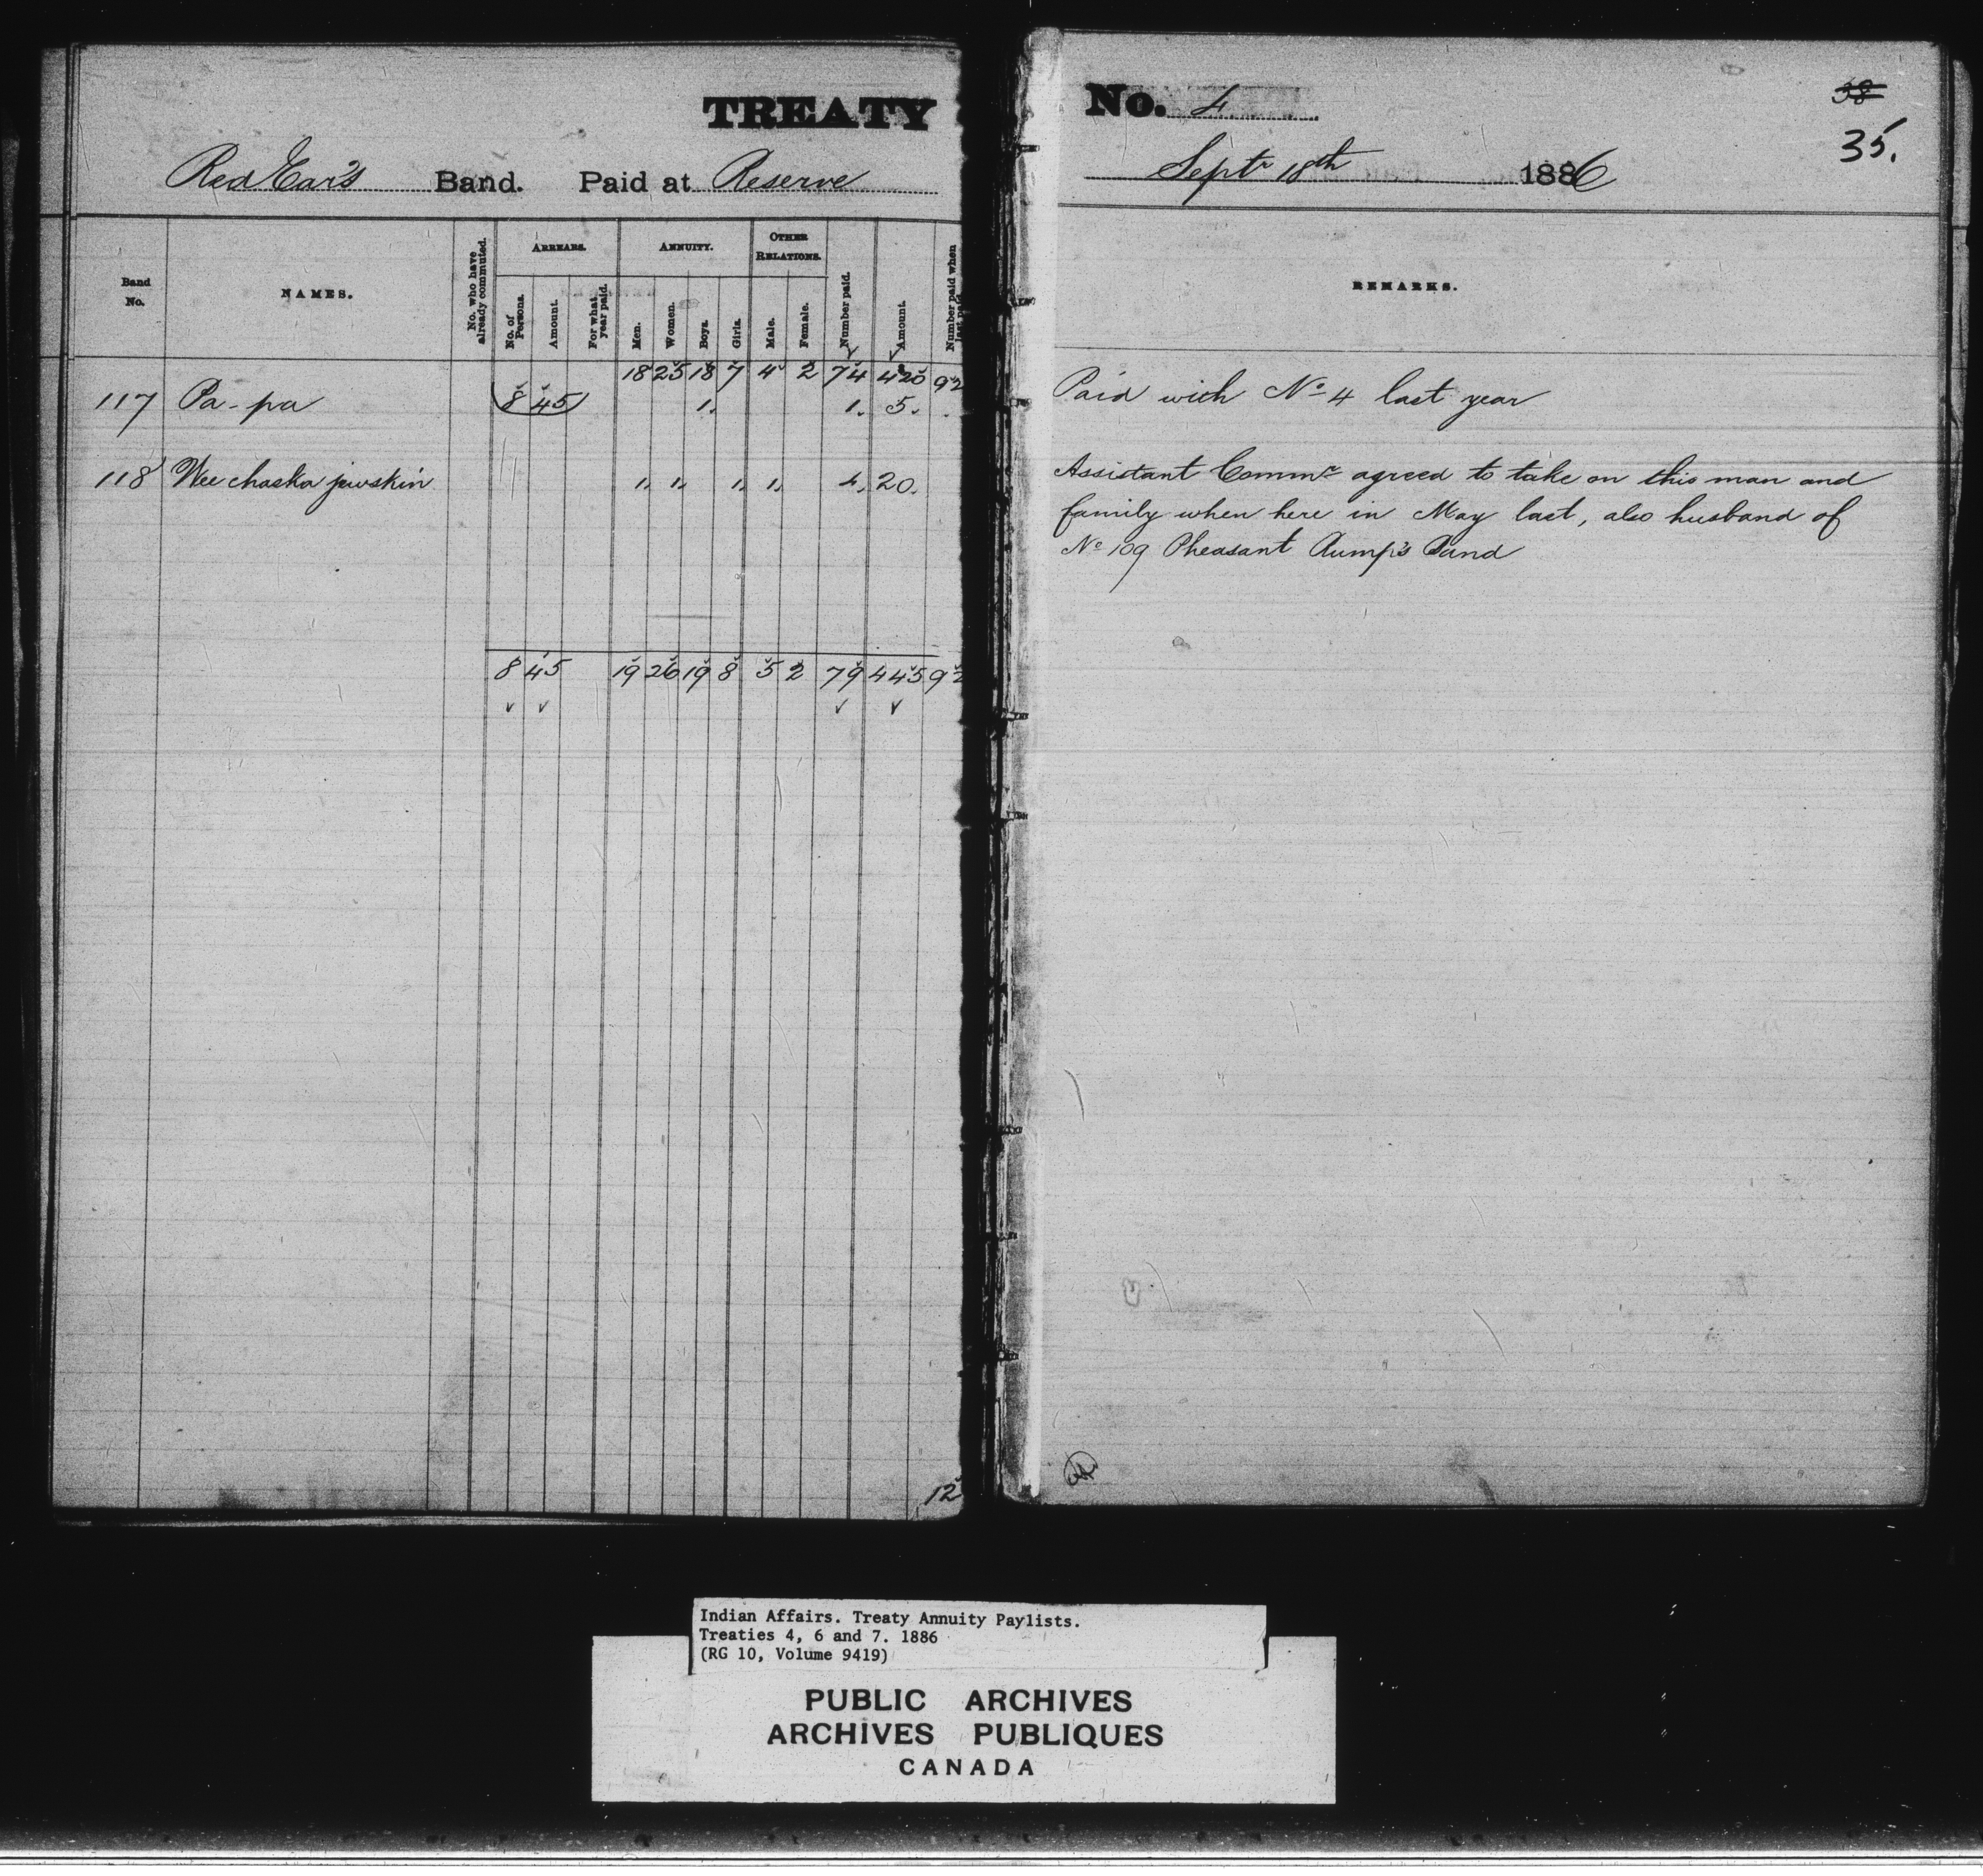 TREATY No. 4
38
35.
Red Ear's Band. Paid at Reserve Septr 18th 1886
Band No.
NAMES.
No. who have already commuted.
ARREARS.
No. of Persons.
Amount.
For what year paid.
ANNUITY.
Men.
Women.
Boys.
Girls.
OTHER RELATIONS.
Male.
Female.
Number paid.
Amount.
Number paid when last paid
REMARKS.
8 45 18 25 18 7 4 2 74 420 92
117 Pa-pa 1. 1. 5. Paid with No 4 last year
118 Wee chaska jewskin 1. 1. 1. 1. 4. 20. Assistant Commr agreed to take on this man and
family when here in May last, also husband of
No 109 Pheasant Rump's Band
8 45 19 26 19 8 5 2 79 445 92
12
Indian Affairs. Treaty Annuity Paylists.
Treaties 4, 6 and 7. 1886
(RG 10, Volume 9419)
PUBLIC ARCHIVES
ARCHIVES PUBLIQUES
CANADA